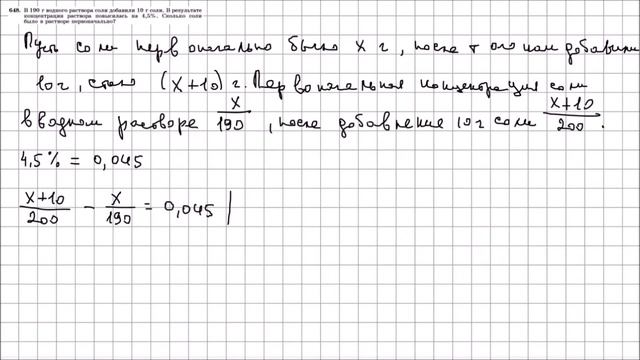 648. В 190 г водного раствора соли добавили 10 г соли. В результате
концентрация раствора повысилась на 4,5%. Сколько соли
было в растворе первоначально?
Пусть соли первоначально было x г, после того как добавили
10г, стало (x+10) г. Первоначальная концентрация соли
в водном растворе x/190, после добавление 10г соли x+10/200.
4,5% = 0,045
x+10/200 - x/190 = 0,045 |